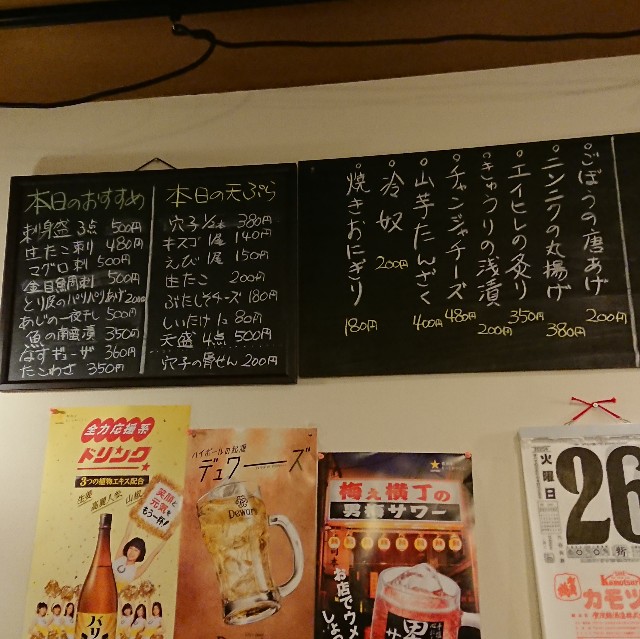 本日のおすすめ
刺身盛 3点 500円
生たこ刺 480円
マグロ刺 500円
金目鯛刺 500円
とり皮のパリパリあげ 200円
あじの一夜干し 500円
魚の南蛮漬 350円
なすギョーザ 360円
たこわさ 350円
本日の天ぷら
穴子1/2本 380円
キスゴ1尾 140円
えび1尾 150円
生たこ 200円
ぶたしそチーズ 180円
しいたけ1コ 80円
天盛 4点 500円
穴子の骨せん 200円
ごぼうの唐あげ 200円
ニンニクの丸揚げ 380円
エイヒレの炙り 350円
きゅうりの浅漬 200円
チャンジャチーズ 480円
山芋たんざく 400円
冷奴 200円
焼きおにぎり 180円
全力応援系
ドリンク
3つの植物エキス配合
生姜 高麗人参 山椒
笑顔と
元気を
もう一杯!
ハイボールの私選
デュワーズ
Dewar's
梅ぇ横丁の
男梅サワー
お店でウメ
しょっ
男
サ
火曜日
26
Kamotsuru
カモツ